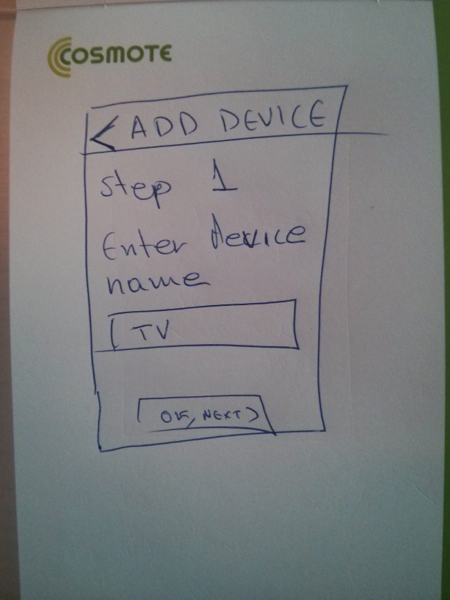 COSMOTE
< ADD DEVICE
Step 1
Enter device
name
TV
OK, NEXT >